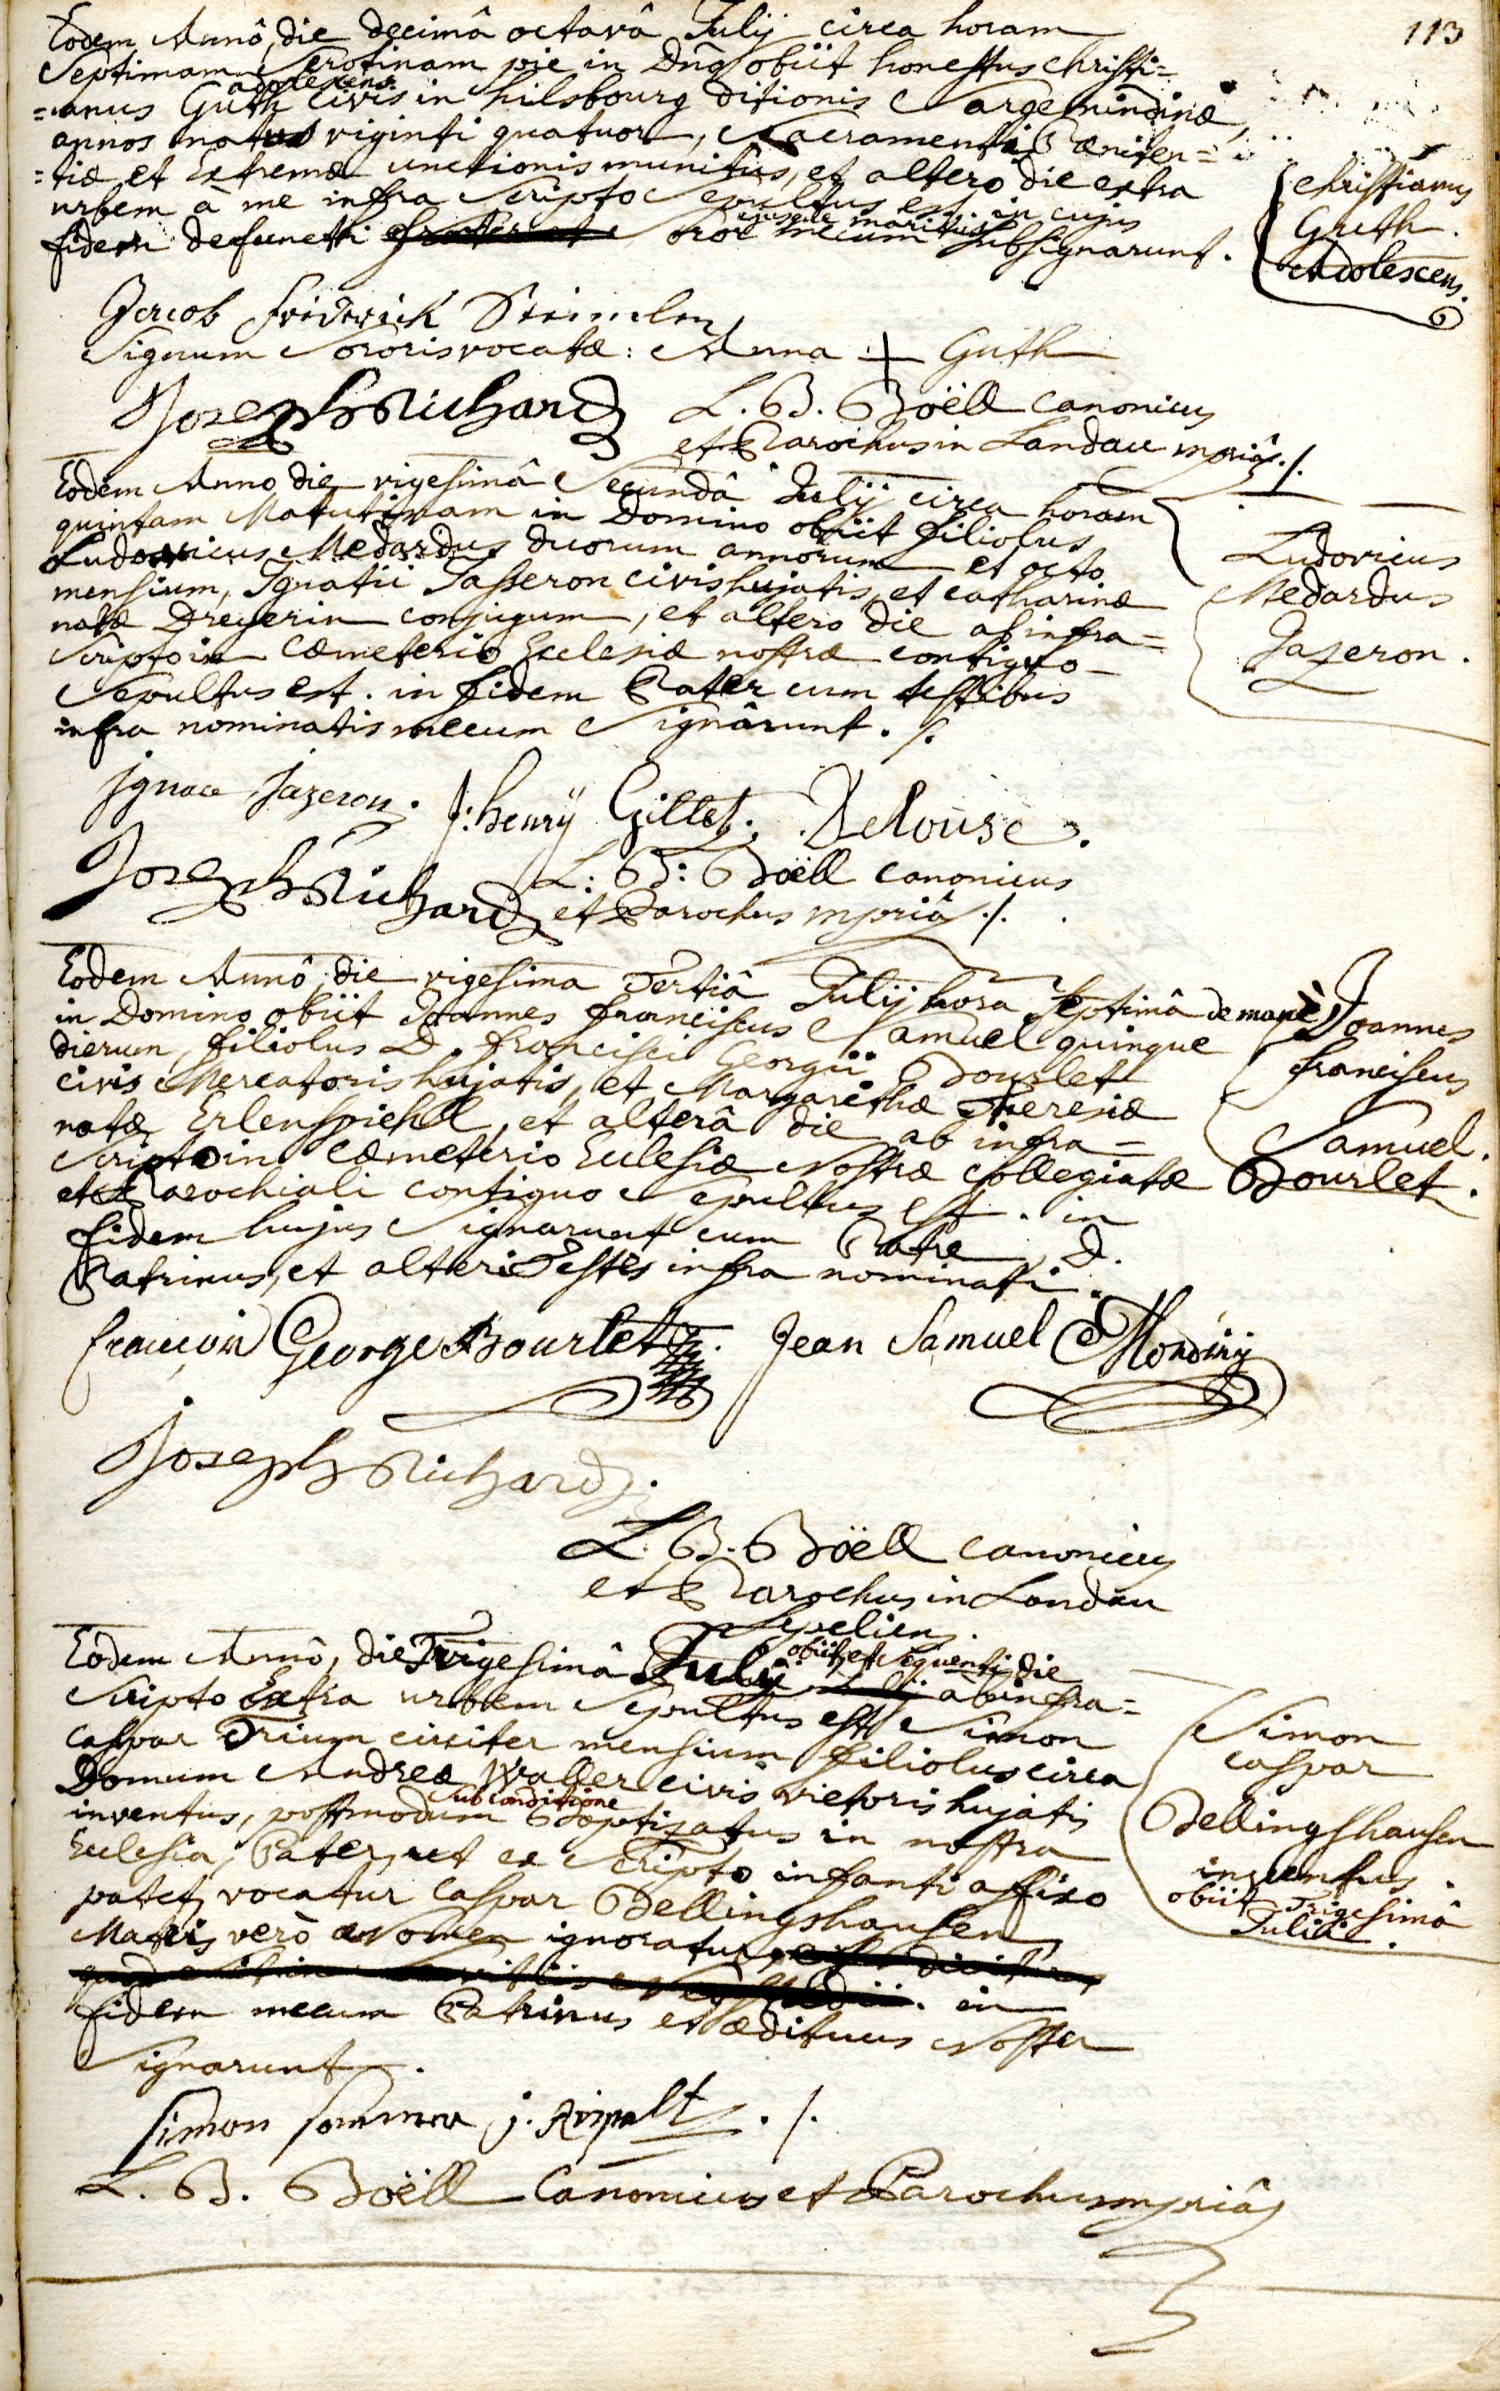 113
Eodem Annô, die decimâ octavâ Julij circa horam
Septimam Serotinam pie in Dno obiit honestus christi=
adolescens
=anus Guth civis in hilsbourg ditionis Sargemindinæ,
annos natus viginti quatuor, Sacramentis Pæniten=
=tiæ et Extremæ unctionis munitus, et altero die extra
urbem à me infra Scripto Sepultus est, in cujus
ejusque maritus
fidem defuncti frater et Soror mecum Subsignarunt.
christianus
Guth.
Adolescens.
Jacob fridrich
Signum Sororis vocatæ: Anna + Guth
Joseph Richard L. B. Boëll canonicus
et Parochus in Landau mpriâ ./.
Eodem Anno die vigesimâ Secundâ Julij circa horam
quintam Matutinam in Domino obiit filiolus
Ludovicus Medardus duorum annorum et octo
mensium, Ignatii Jasseron civis hujatis, et catharinæ
natæ Dreyerin conjugum, et altero die ab infra=
Scripto in Cæmeterio Ecclesiæ nostræ contiguo
Sepultus est. in fidem Pater cum testibus
infra nominatis mecum Signârunt. ./.
Ludovicus
Medardus
Jazeron.
Ignace Jazeron. J: henrÿ Gillet. Delouse.
Joseph Richard L: B: Boëll canonicus
et Parochus mpriâ ./.
Eodem Annô, die vigesima Tertiâ Julij hora Septimâ de manè
in Domino obiit Joannes franciscus Samuel quinque
dierum, filiolus D. francisci Georgii Bourlet
civis Mercatoris hujatis, et Margarethæ Theresiæ
natæ Erlenspiehl, et alterâ die ab infra=
Scripto in Cæmeterio Ecclesiæ Nostræ Collegiatæ
et Parochiali contiguo Sepultus est. in
fidem hujus Signarunt cum Patre, D.
Patrinus, et alteri Testes infra nominati.
Joannes
franciscus
Samuel.
Bourlet.
francois George Bourlet. Jean Samuel Mondinÿ
Joseph Richard.
L. B. Boëll canonicus
et Parochus in Landau
Sepeliens.
obiit, et Sequenti die
Eodem Annô, die Trigesimâ Julij ab infra=
Scripto Extra urbem Sepultus est Simon
caspar Trium circiter mensium filiolus circa
Domum Andreæ Walter civis vietoris hujatis
Sub conditione
inventus, postmodum Baptizatus in nostra
Ecclesia, Pater, ut ex Scripto infanti affixo
patet, vocatur Caspar Bellingshausen
Matris verò Nomen ignoratur
in
fidem mecum Patrinus et ædituus Noster
Signarunt.
Simon
caspar
Bellingshausen
inventus.
obiit Trigesimâ
Julii.
Simon sommer j. Rispalt ./.
L. B. Boëll Canonicus et Parochus mpriâ